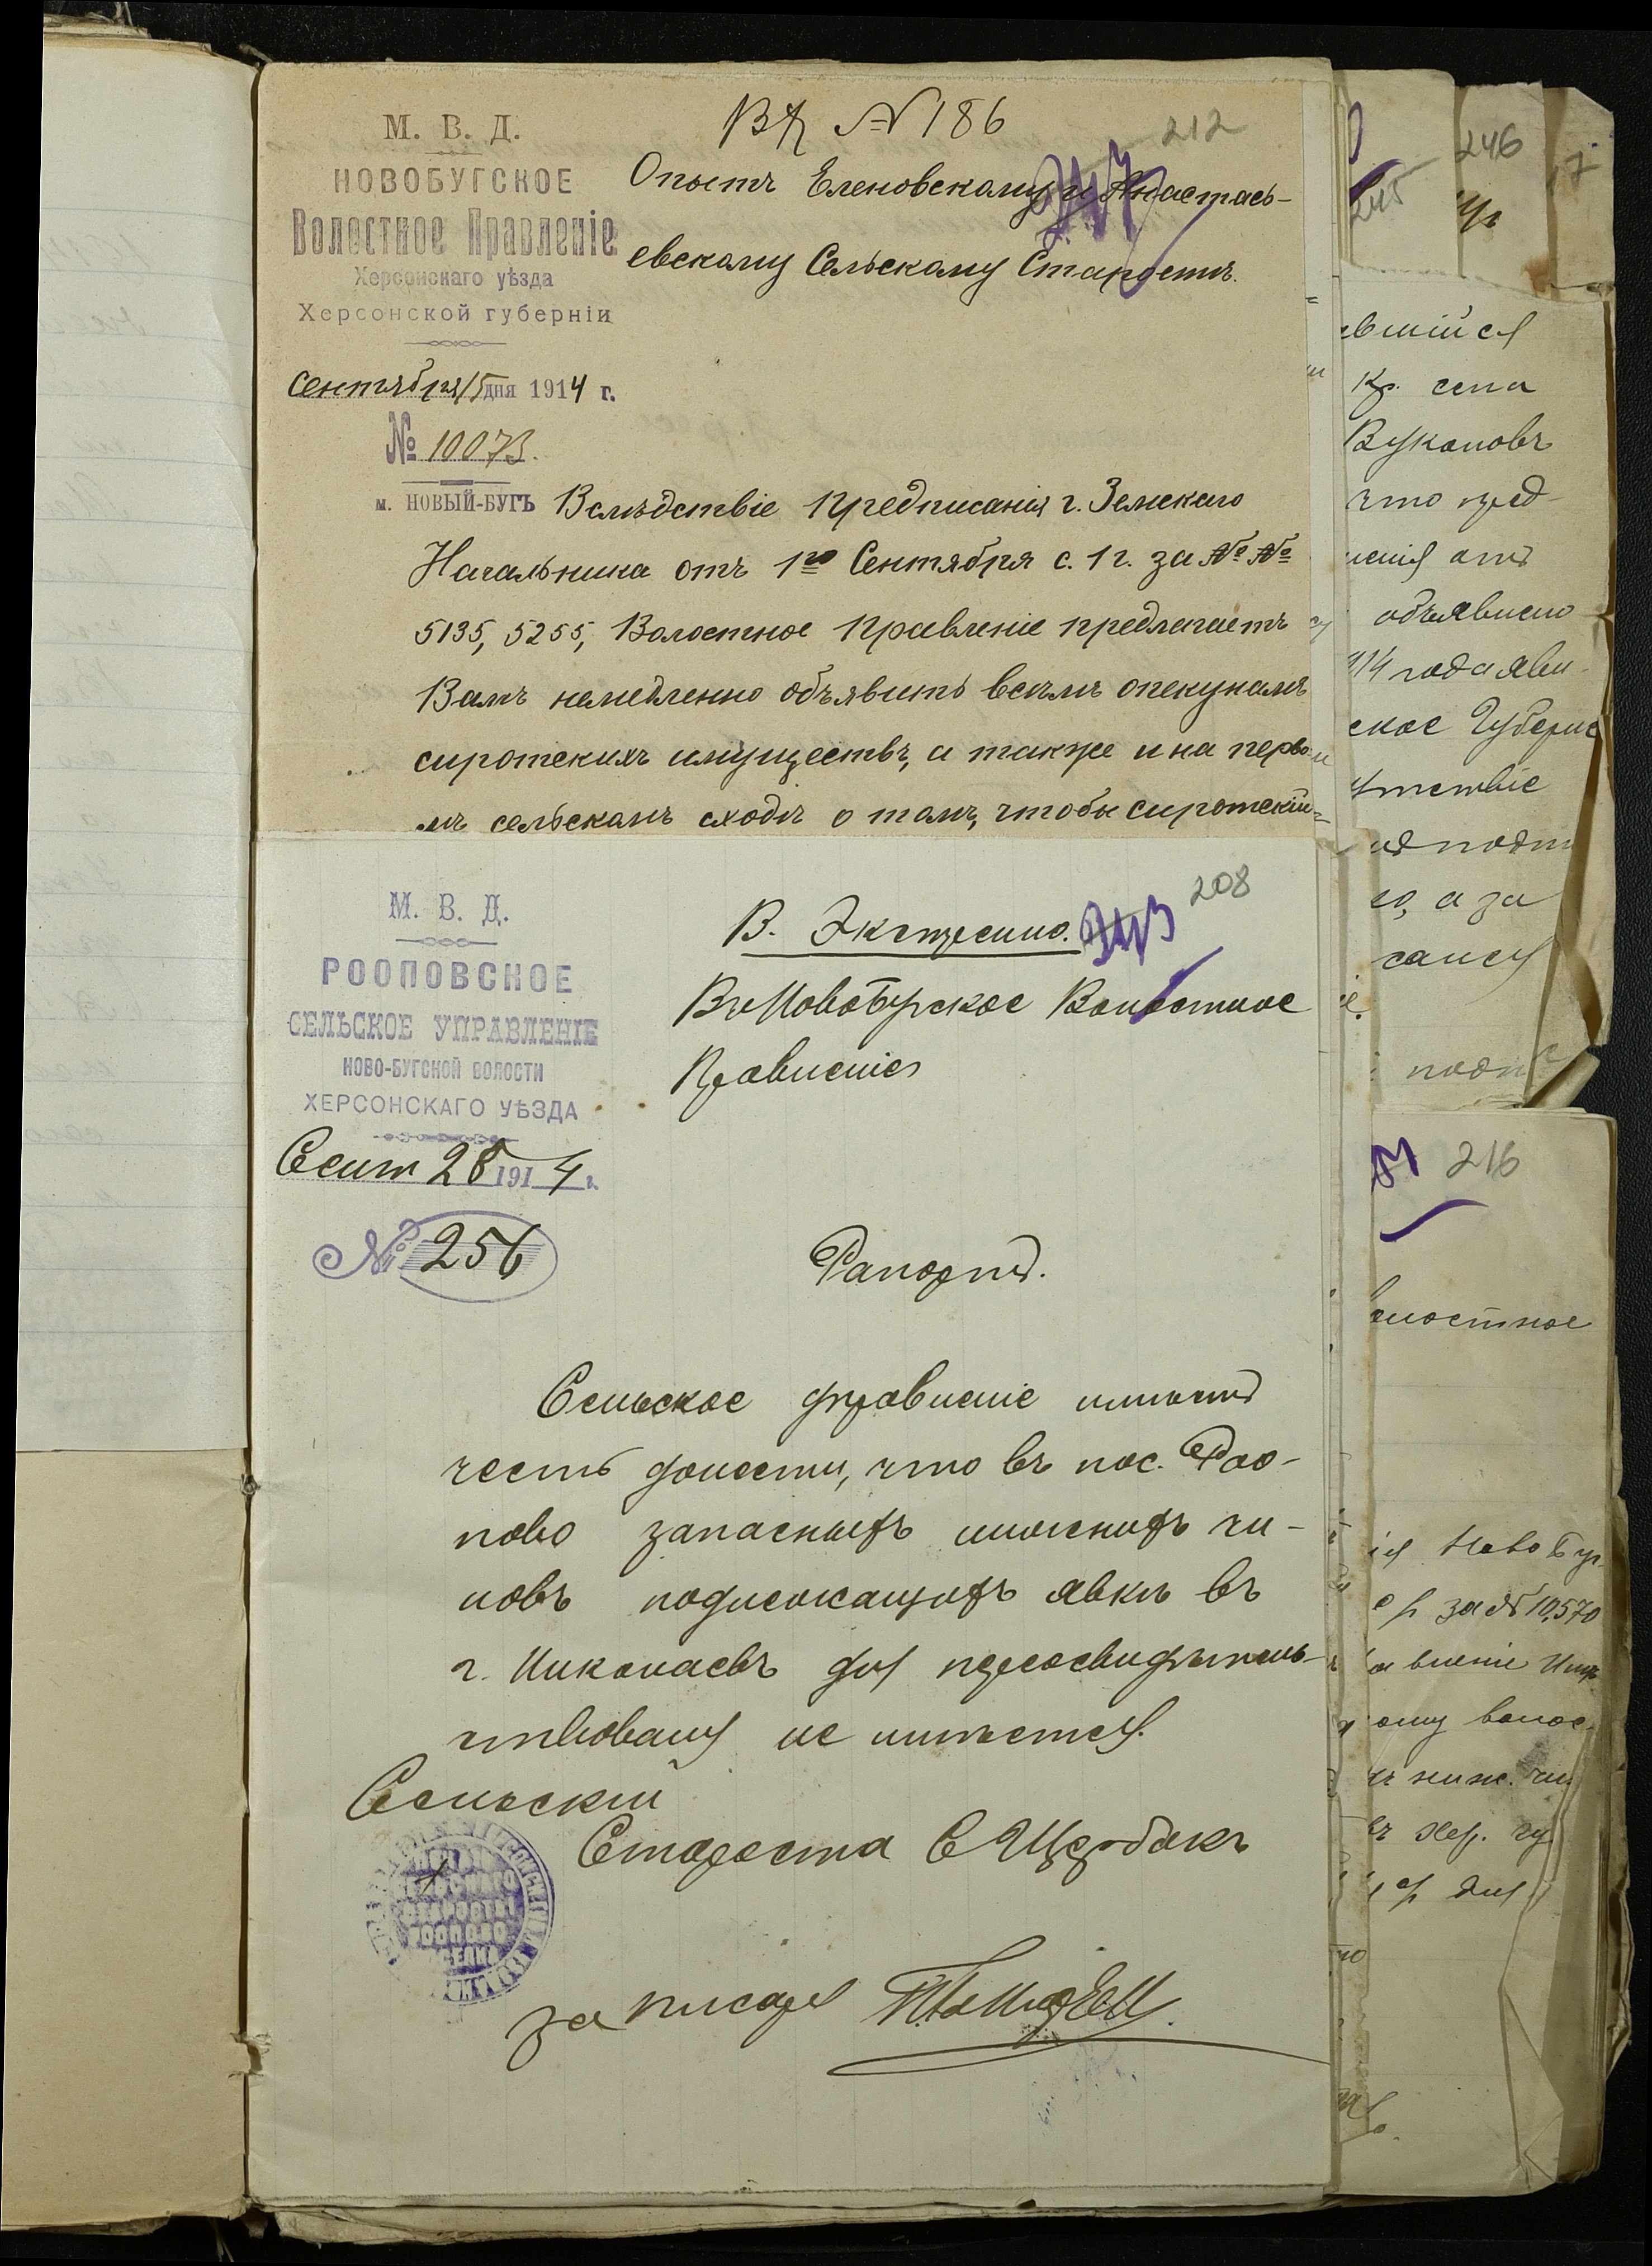 М. В. Д.
НОВОБУГСКОЕ
Волостное Правленіе
Херсонскаго уѣзда
Херсонской губерніи
Сентября 15 дня 1914 г.
№ 10073.
м. НОВЫЙ-БУГЪ
№ 186
212
Еленовскому и Анастась-
евскому Сельскому Старостѣ.
Вслѣдствіе предписанія г. Земскаго
Начальника отъ 1го Сентября с. г. за №№
5135, 5255, Волостное Правленіе предлагаетъ
Вамъ немедленно объявить всѣмъ опекунамъ
сиротскихъ имуществъ, а также и на перво-
мъ сельскомъ сходѣ о томъ, чтобы сиротскі-
М. В. Д.
РООПОВСКОЕ
СЕЛЬСКОЕ УПРАВЛЕНІЕ
НОВО-БУГСКОЙ ВОЛОСТИ
ХЕРСОНСКАГО УѢЗДА
Сент 28 1914 г.
№ 256
208
В. Экстренно.
Въ Новобугское Волостное
Правленіе
Рапортъ.
Сельское управленіе имѣетъ
честь донести, что въ пос. Роо-
пово запасныхъ нижнихъ чи-
новъ подлежащихъ явкѣ въ
г. Николаевъ для переосвидѣтель-
ствованія не имѣется.
Сельскій
Староста С Щербакъ
за писаря
246
245
вшійся
кр. села
Вукановъ
что пред-
ленія отъ
объявлено
914 года яви-
ское Губерн
утствіе
его, а за
216
олостное
ія Новобуг-
за № 10,570
авленіе
ому волос-
ниж. чи
Хер. гу